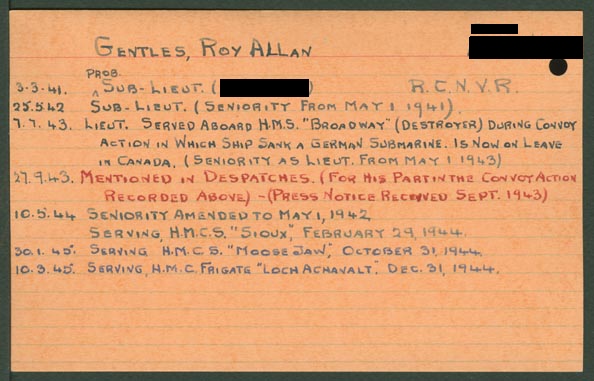 GENTLES, ROY ALLAN
PROB.
3.3.41. ^SUB-LIEUT. ( ) R.C.N.V.R.
25.5.42 SUB-LIEUT. (SENIORITY FROM MAY 1 1941).
7.7.43. LIEUT. SERVED ABOARD H.M.S. "BROADWAY" (DESTROYER) DURING CONVOY
ACTION IN WHICH SHIP SANK A GERMAN SUBMARINE. IS NOW ON LEAVE
IN CANADA. (SENIORITY AS LIEUT. FROM MAY 1 1943)
27.9.43. MENTIONED IN DESPATCHES. (FOR HIS PART IN THE CONVOY ACTION
RECORDED ABOVE) - (PRESS NOTICE RECEIVED SEPT. 1943)
10.5.44 SENIORITY AMENDED TO MAY 1, 1942.
SERVING, H.M.C.S. "SIOUX," FEBRUARY 29, 1944.
30.1.45. SERVING H.M.C.S. "MOOSE JAW", OCTOBER 31, 1944.
10.3.45. SERVING, H.M.C. FRIGATE "LOCH ACHAVALT", DEC. 31, 1944.